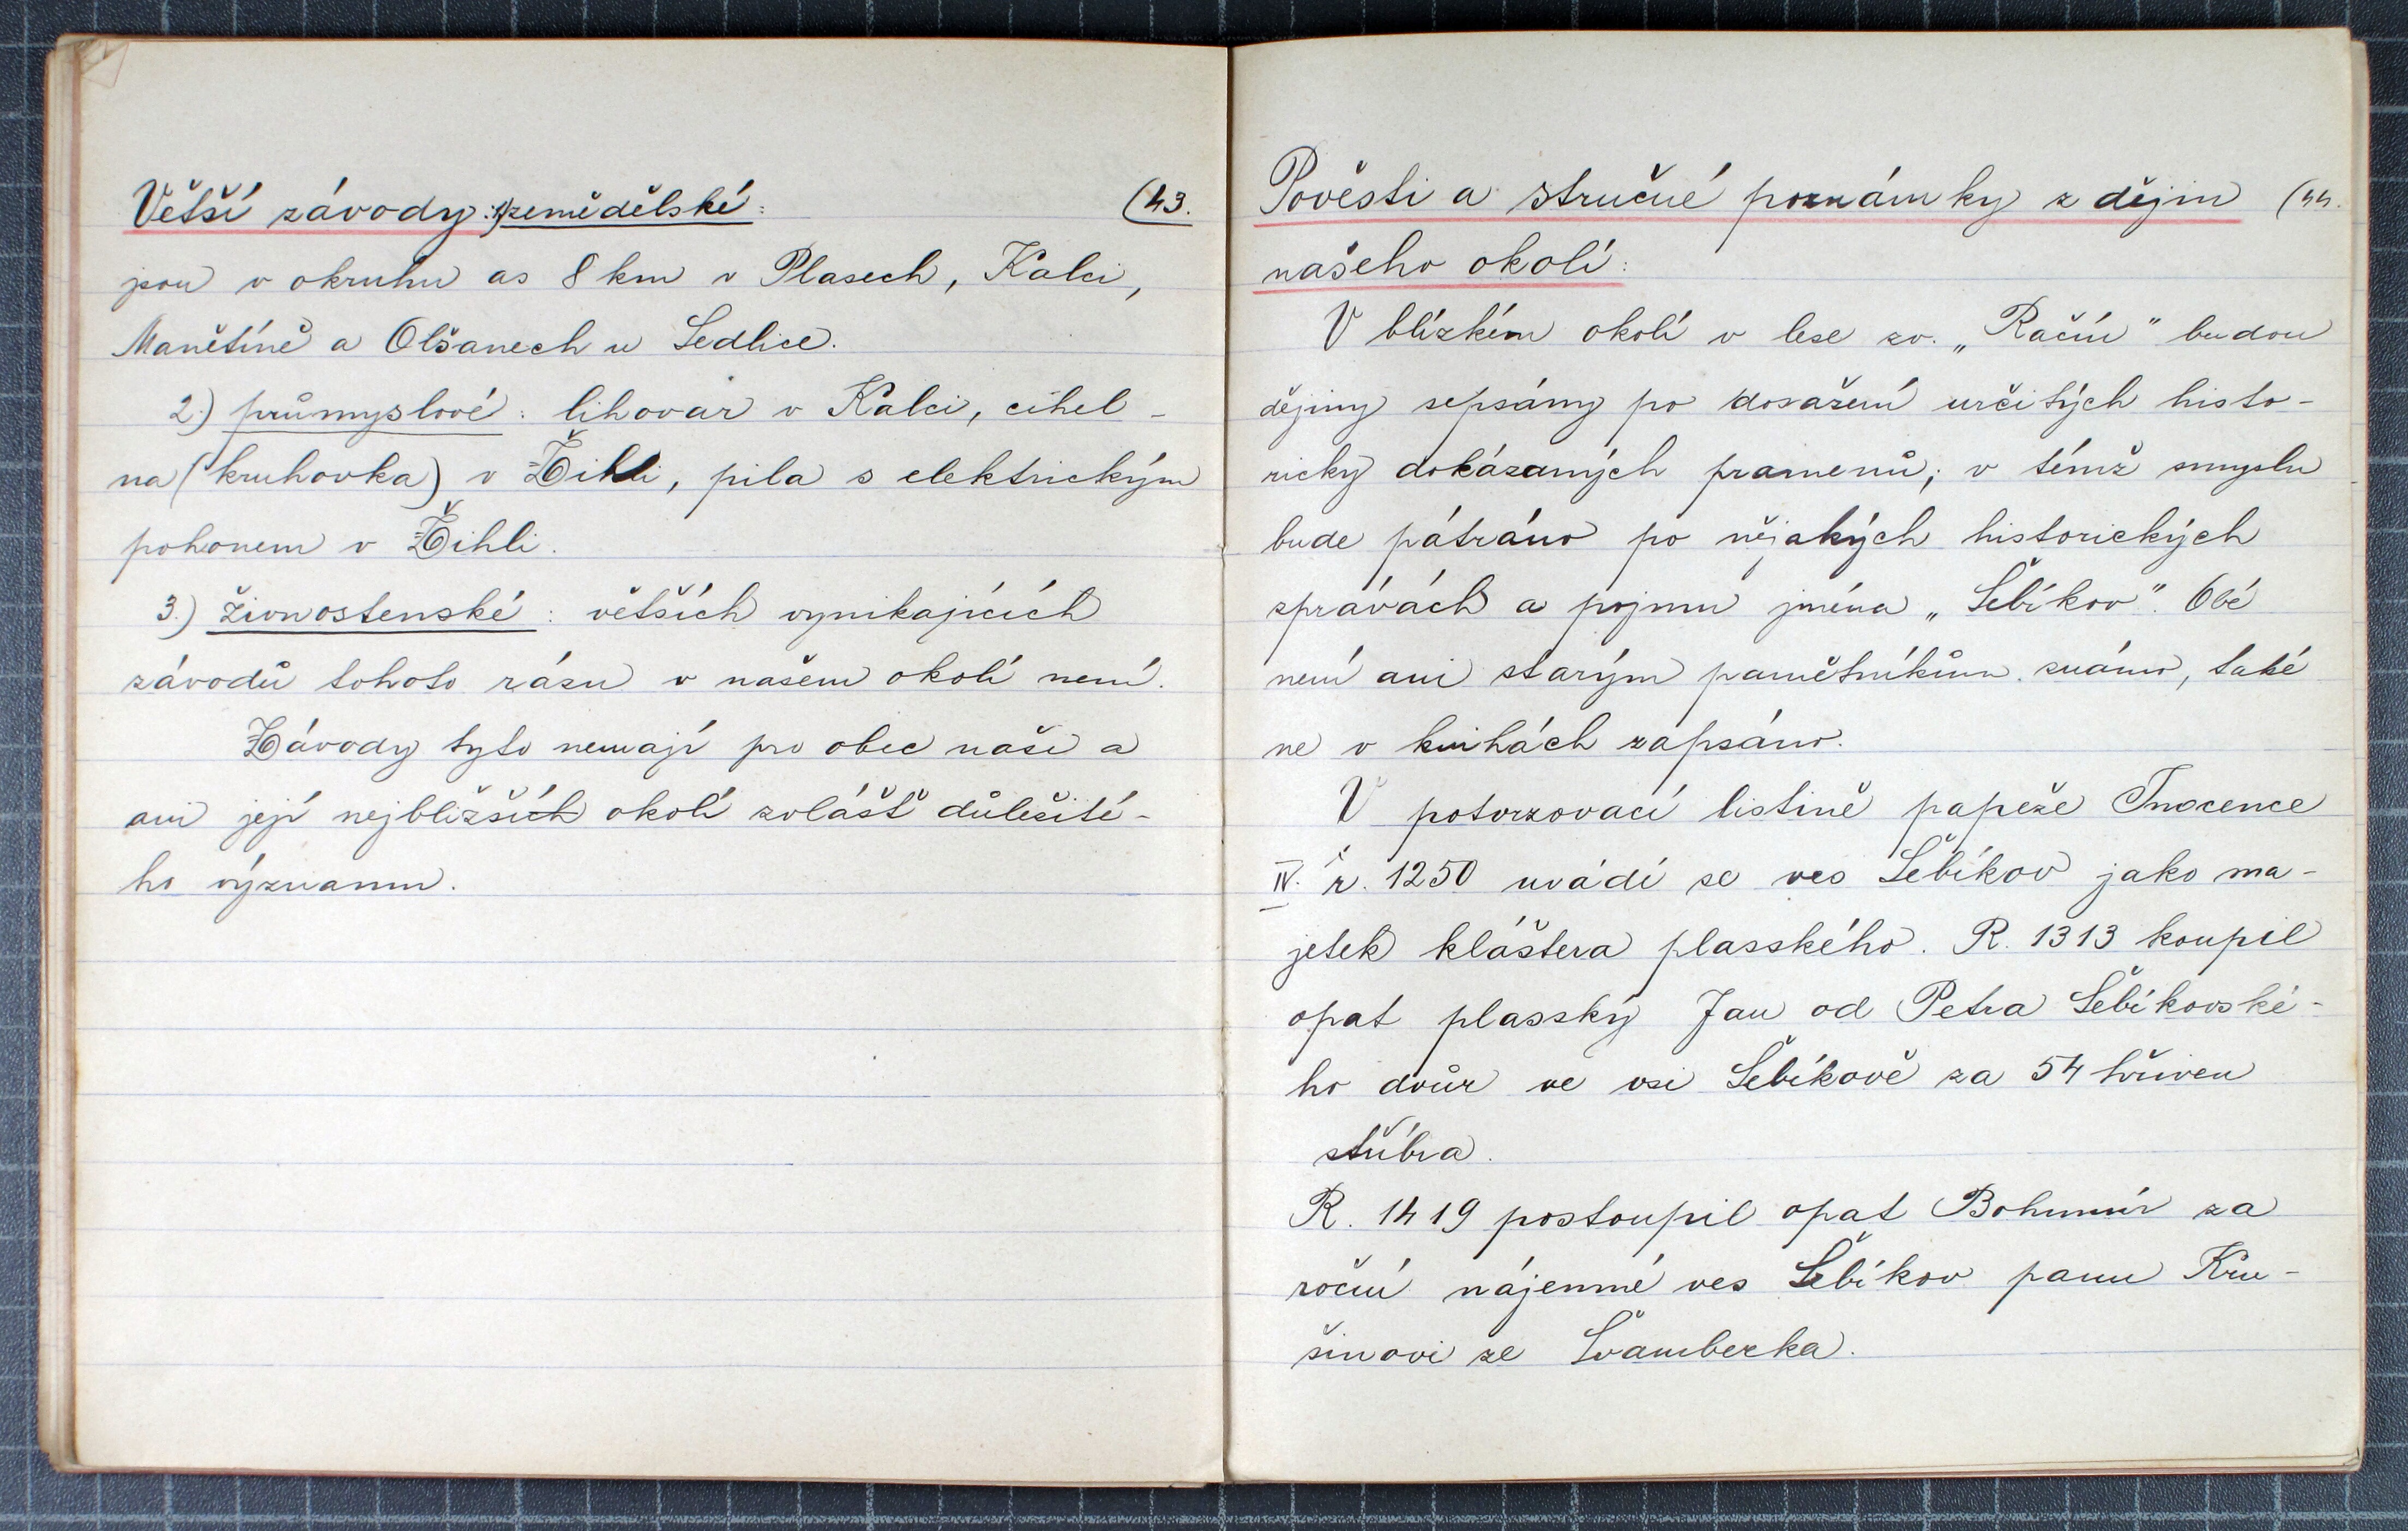 Větší závody: 1) zemědělské: (43.
jsou v okruhu as 8 km v Plasech, Kalci,
Manětíně a Olšanech u Sedlice.
2.) průmyslové: lihovar v Kalci, cihel-
na (kruhovka) v Žihli, pila s elektrickým
pohonem v Žihli.
3.) živnostenské: větších vynikajících
závodů tohoto rázu v našem okolí není.
Závody tyto nemají pro obec naši a
ani její nejbližších okolí zvlášť důležité-
ho významu.
Pověsti a stručné poznámky z dějin (44.
našeho okolí:
V blízkém okolí v lese zv. „Račín" budou
dějiny sepsány po dosažení určitých histo-
ricky dokázaných pramenů; v témž smyslu
bude pátráno po nějakých historických
zprávách a pojmu jména „Šebíkov". Obé
není ani starým pamětníkům známo, také
ne v knihách zapsáno.
V potvrzovací listině papeže Inocence
IV. z r. 1250 uvádí se ves Šebíkov jako ma-
jetek kláštera plasského. R. 1313 koupil
opat plasský Jan od Petra Šebíkovské-
ho dvůr ve vsi Šebíkově za 54 hřiven
stříbra.
R. 1419 postoupil opat Bohumír za
roční nájemné ves Šebíkov panu Kru-
šinovi ze Švamberka.